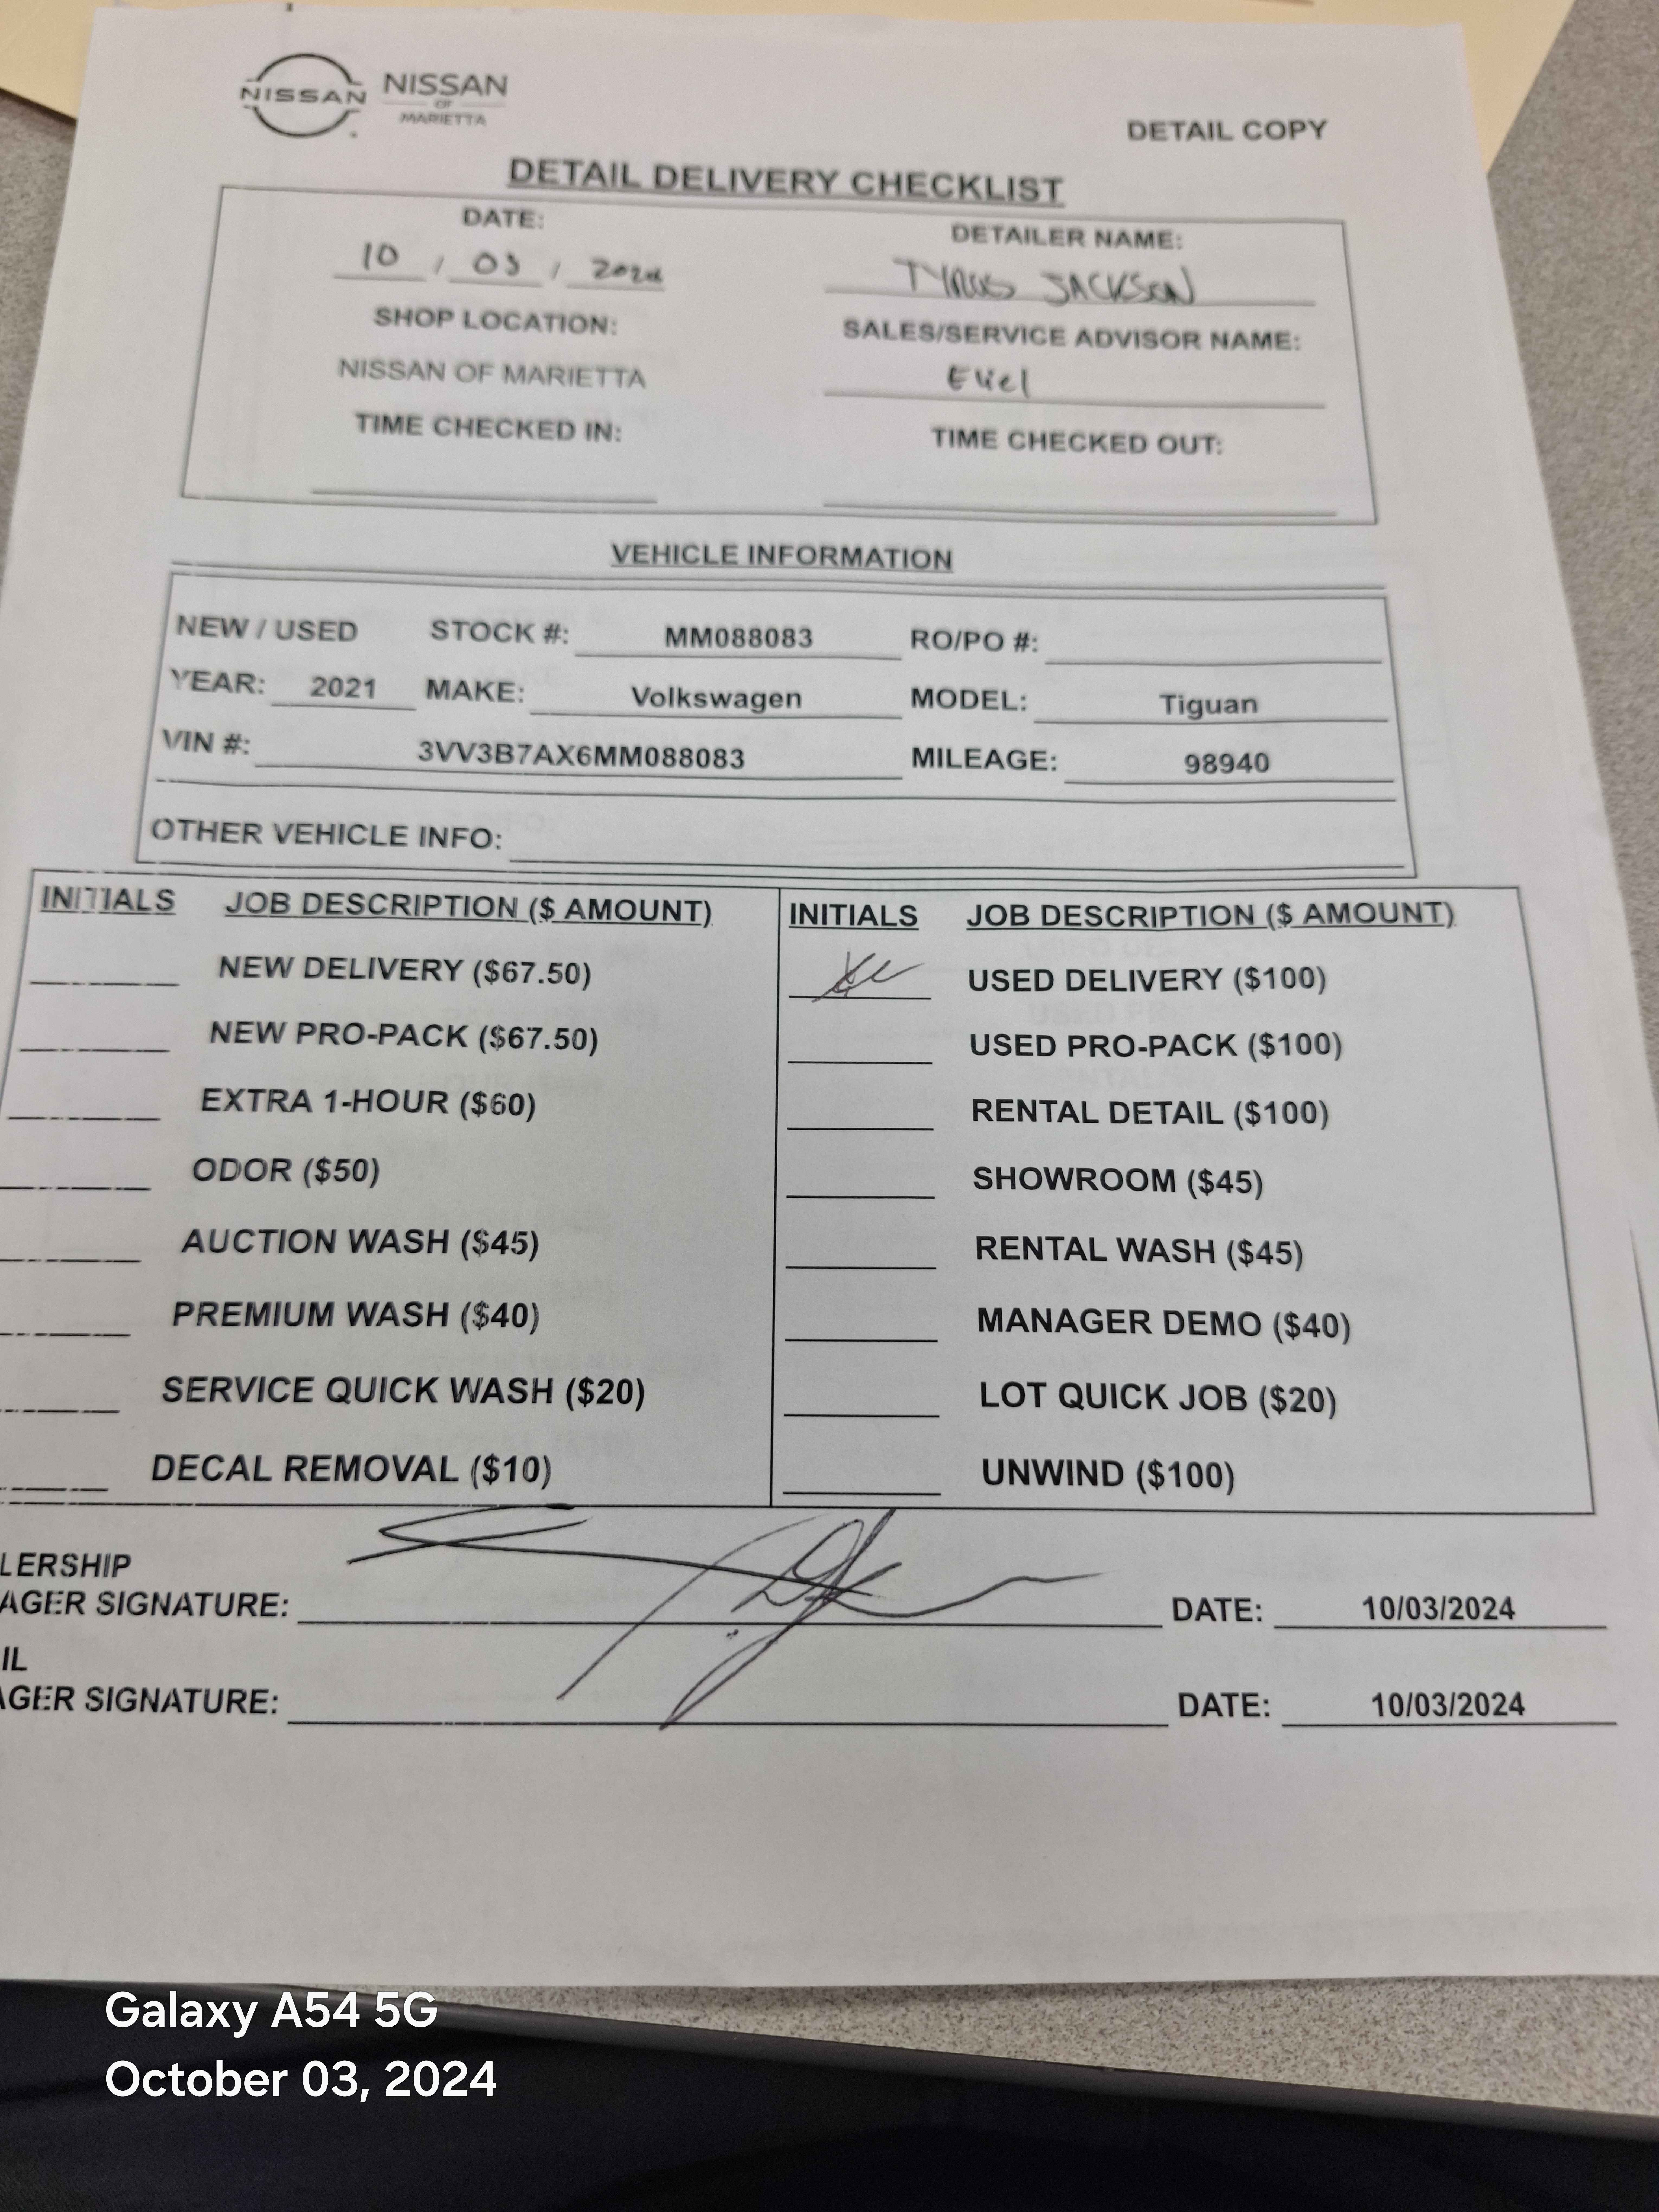 NISSAN NISSAN
OF
MARIETTA
DETAIL COPY
DETAIL DELIVERY CHECKLIST
DATE: DETAILER NAME:
10 / 03 / 2024 TYRUS JACKSON
SHOP LOCATION: SALES/SERVICE ADVISOR NAME:
NISSAN OF MARIETTA Eliel
TIME CHECKED IN: TIME CHECKED OUT:
VEHICLE INFORMATION
NEW / USED STOCK #: MM088083 RO/PO #:
YEAR: 2021 MAKE: Volkswagen MODEL: Tiguan
VIN #: 3VV3B7AX6MM088083 MILEAGE: 98940
OTHER VEHICLE INFO:
INITIALS JOB DESCRIPTION ($ AMOUNT) INITIALS JOB DESCRIPTION ($ AMOUNT)
NEW DELIVERY ($67.50) USED DELIVERY ($100)
NEW PRO-PACK ($67.50) USED PRO-PACK ($100)
EXTRA 1-HOUR ($60) RENTAL DETAIL ($100)
ODOR ($50) SHOWROOM ($45)
AUCTION WASH ($45) RENTAL WASH ($45)
PREMIUM WASH ($40) MANAGER DEMO ($40)
SERVICE QUICK WASH ($20) LOT QUICK JOB ($20)
DECAL REMOVAL ($10) UNWIND ($100)
LERSHIP
AGER SIGNATURE: DATE: 10/03/2024
IL
AGER SIGNATURE: DATE: 10/03/2024
Galaxy A54 5G
October 03, 2024